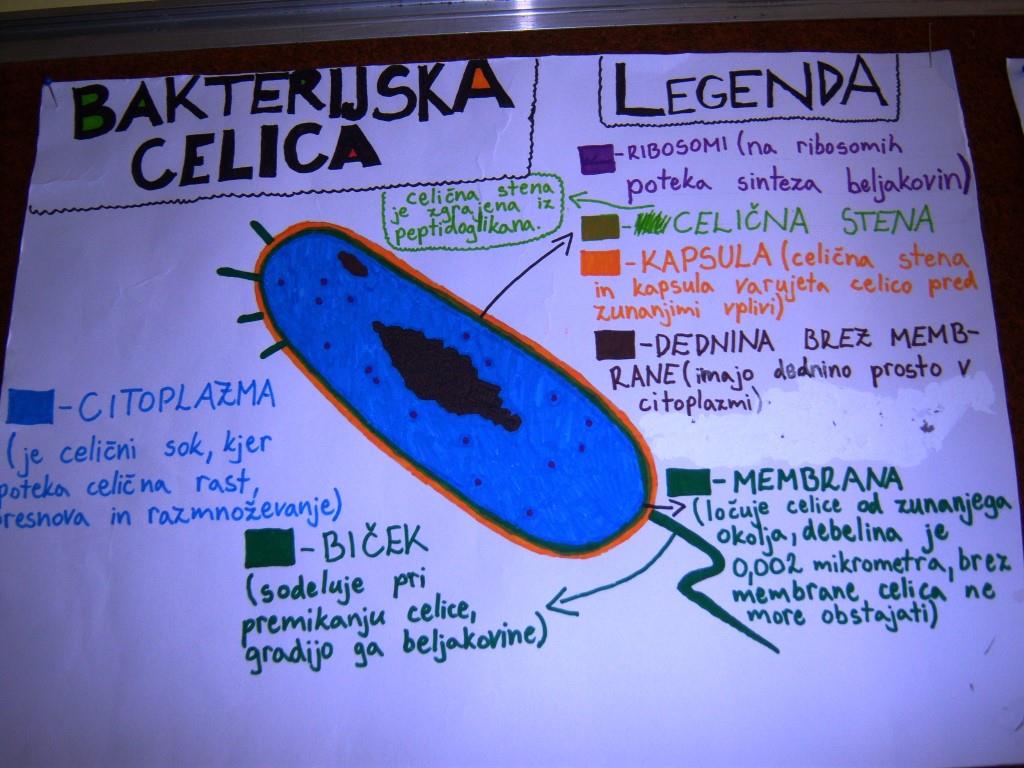 BAKTERIJSKA
CELICA
LEGENDA
-RIBOSOMI (na ribosomih
poteka sinteza beljakovin)
celična stena
je zgrajena iz
peptidoglikana.
-CELIČNA STENA
-KAPSULA (celična stena
in kapsula varujeta celico pred
zunanjimi vplivi)
-DEDNINA BREZ MEMB-
RANE (imajo dednino prosto v
citoplazmi)
-CITOPLAZMA
(je celični sok, kjer
poteka celična rast,
presnova in razmnoževanje)
-MEMBRANA
(ločuje celice od zunanjega
okolja, debelina je
0,002 mikrometra, brez
membrane celica ne
more obstajati)
-BIČEK
(sodeluje pri
premikanju celice,
gradijo ga beljakovine)